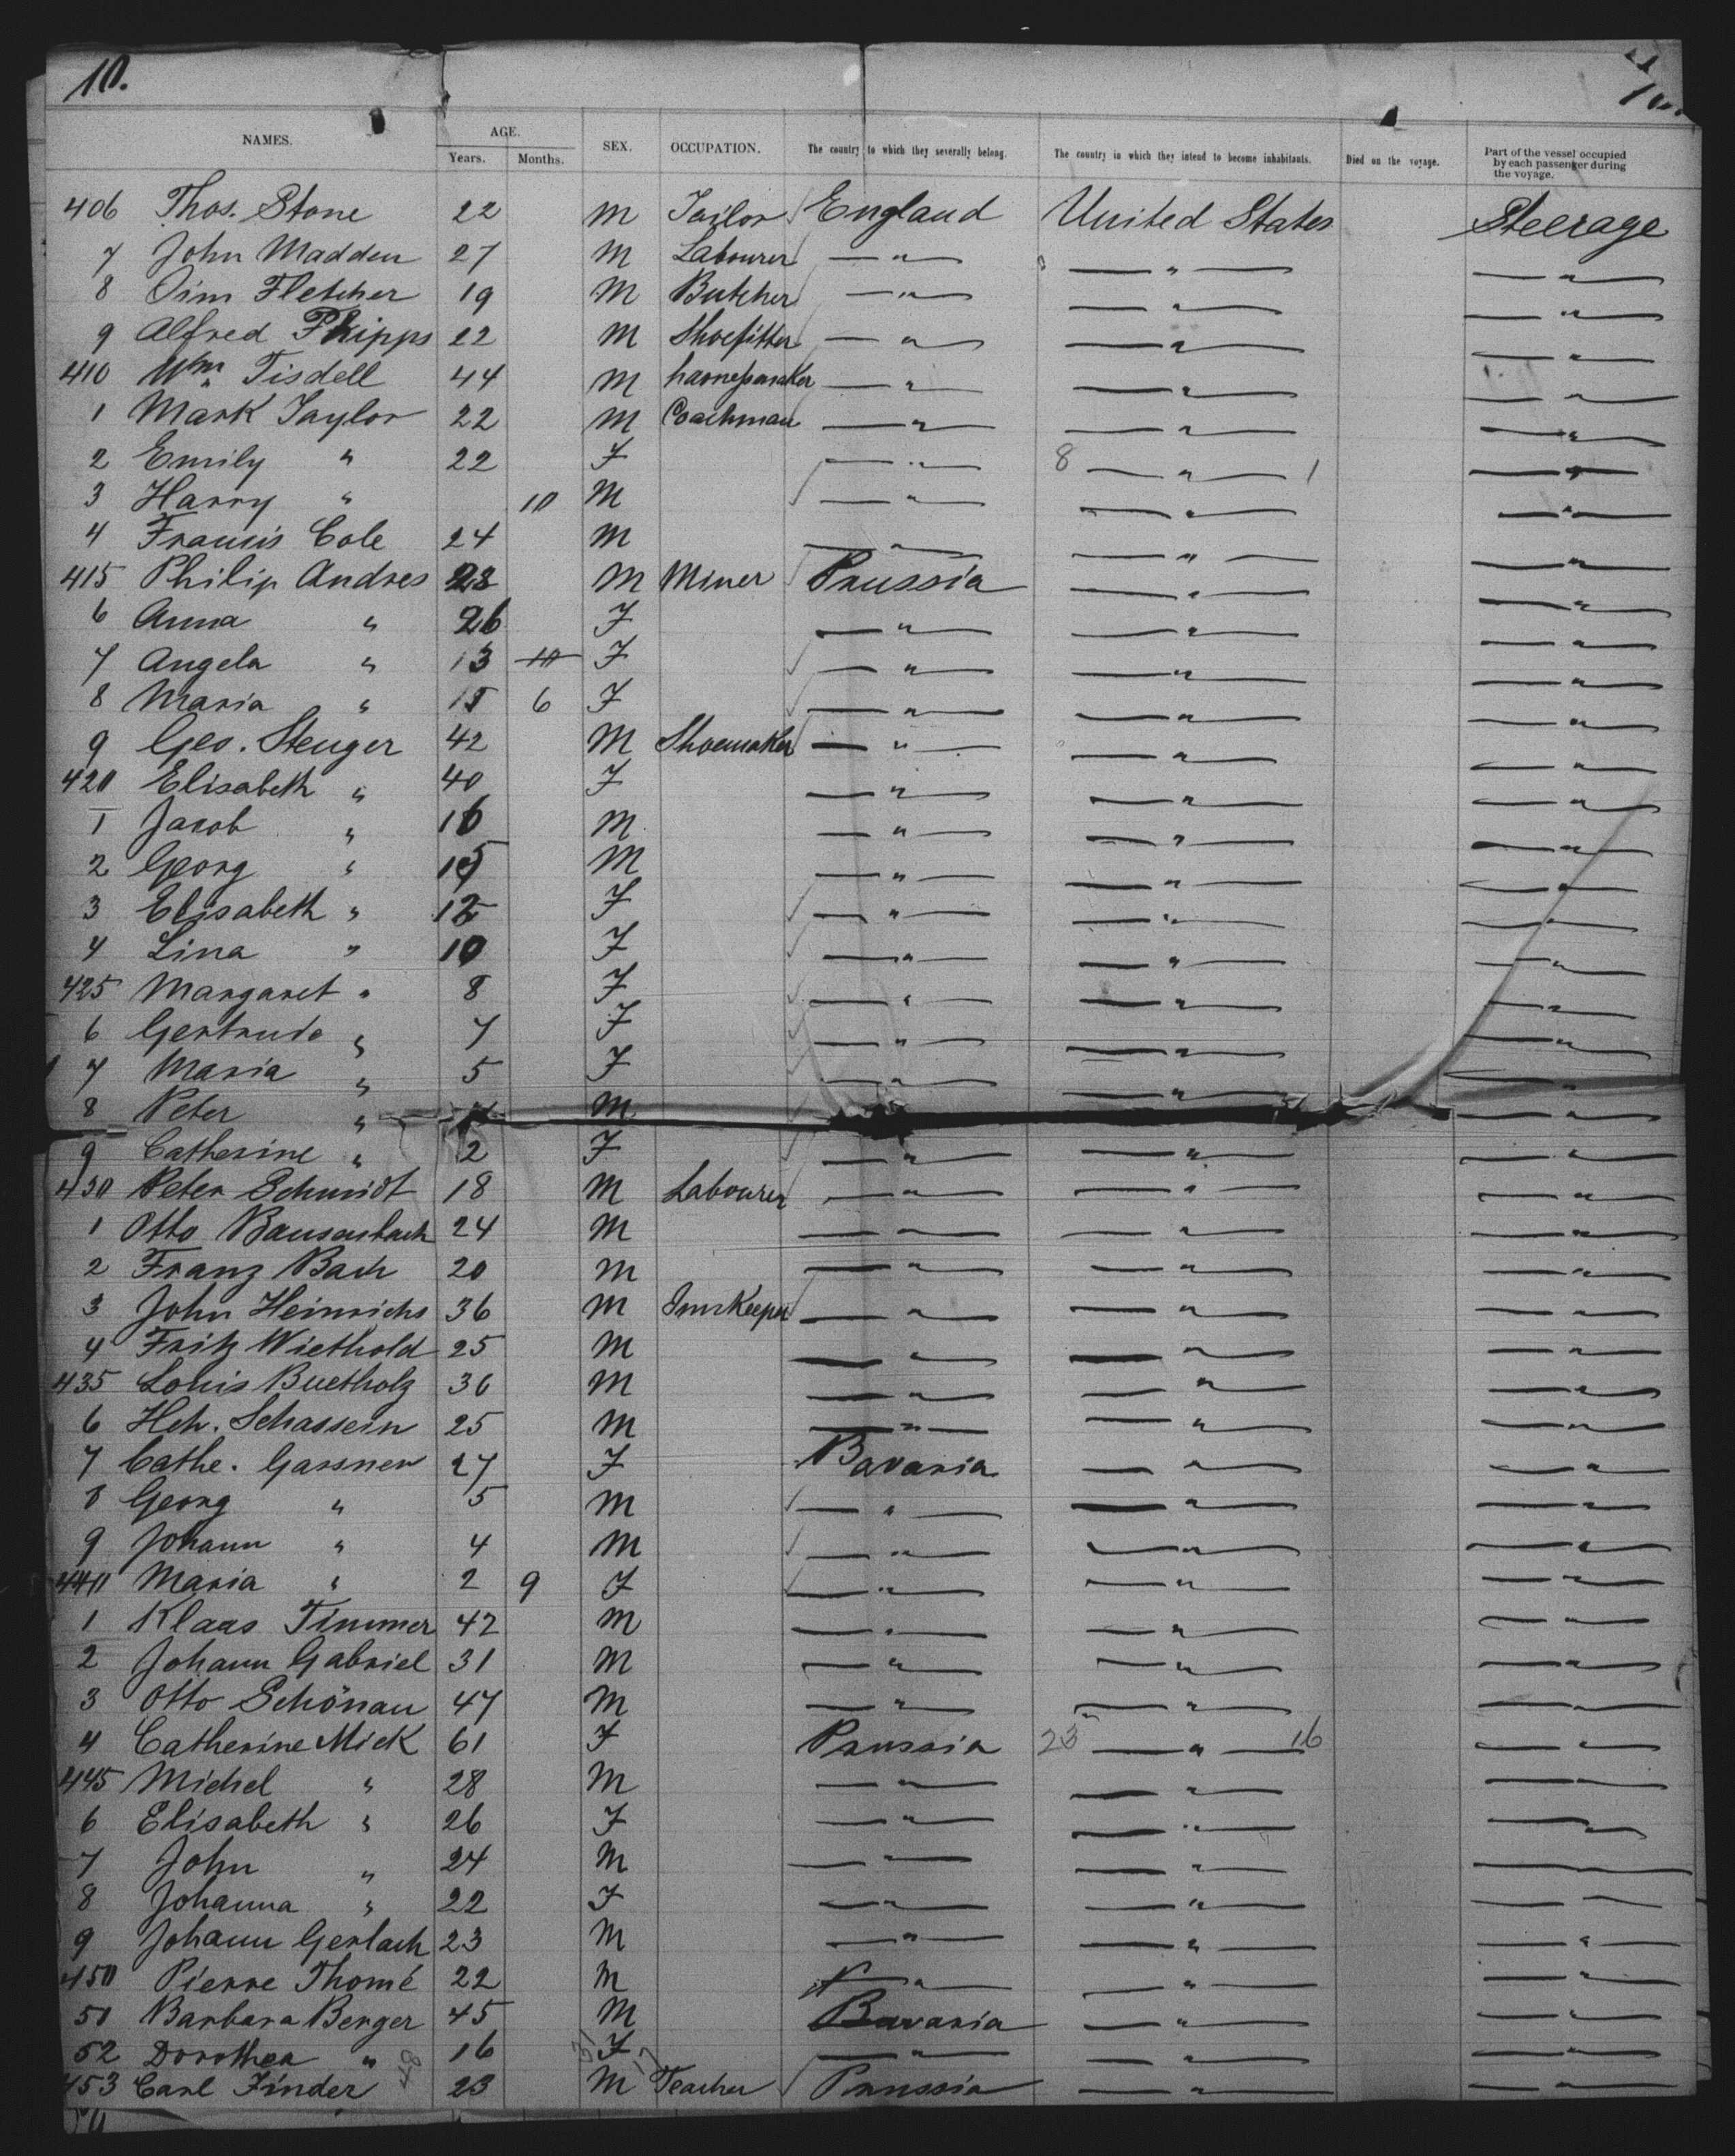 10.
NAMES. AGE. Years. Months. SEX. OCCUPATION. The country to which they severally belong. The country in which they intend to become inhabitants. Died on the voyage. Part of the vessel occupied by each passenger during the voyage.
406 Thos. Stone 22 M Tailor England United States Steerage
7 John Madden 27 M Labourer — " — — " — — " —
8 Oim Fletcher 19 M Butcher — " — — " — — " —
9 Alfred Phipps 22 M Shoefitter — " — — " — — " —
410 Wm. Tisdell 44 M harnessmaker — " — — " — — " —
1 Mark Taylor 22 M Coachman — " — — " — — " —
2 Emily " 22 F — " — 8 — " — 1 — " —
3 Harry " 10 M — " — — " — — " —
4 Francis Cole 24 M — " — — " — — " —
415 Philip Andres 28 M Miner Prussia — " — — " —
6 Anna " 26 F — " — — " — — " —
7 Angela " 13 10 F — " — — " — — " —
8 Maria " 6 F — " — — " — — " —
9 Geo. Stenger 42 M Shoemaker — " — — " — — " —
420 Elisabeth " 40 F — " — — " — — " —
1 Jacob " 16 M — " — — " — — " —
2 Georg " 15 M — " — — " — — " —
3 Elisabeth " 12 F — " — — " — — " —
4 Lina " 10 F — " — — " — — " —
425 Margaret " 8 F — " — — " — — " —
6 Gertrude " 7 F — " — — " — — " —
7 Maria " 5 F — " — — " — — " —
8 Peter " M — " —
9 Catherine " 2 F — " — — " — — " —
430 Peter Schmidt 18 M Labourer — " — — " — — " —
1 Otto Bausenbach 24 M — " — — " — — " —
2 Franz Bach 20 M — " — — " — — " —
3 John Heinrichs 36 M Innkeeper — " — — " — — " —
4 Fritz Wiethold 25 M — " — — " — — " —
435 Louis Buetholz 36 M — " — — " — — " —
6 Hch. Schassein 25 M — " — — " — — " —
7 Cathe. Gassner 27 F Bavaria — " — — " —
8 Georg " 5 M — " — — " — — " —
9 Johann " 4 M — " — — " — — " —
440 Maria " 2 9 F — " — — " — — " —
1 Klaas Timmer 42 M — " — — " — — " —
2 Johann Gabriel 31 M — " — — " — — " —
3 Otto Schönau 47 M — " — — " — — " —
4 Catherine Mick 61 F Prussia 23 — " — 16 — " —
445 Michel " 28 M — " — — " — — " —
6 Elisabeth " 26 F — " — — " — — " —
7 John " 24 M — " — — " — — " —
8 Johanna " 22 F — " — — " — — " —
9 Johann Gerlach 23 M — " — — " — — " —
450 Pierre Thomé 22 M — " — — " — — " —
51 Barbara Berger 45 M Bavaria — " — — " —
52 Dorothea " 16 F — " — — " — — " —
453 Carl Finder 23 M Teacher Prussia — " — — " —